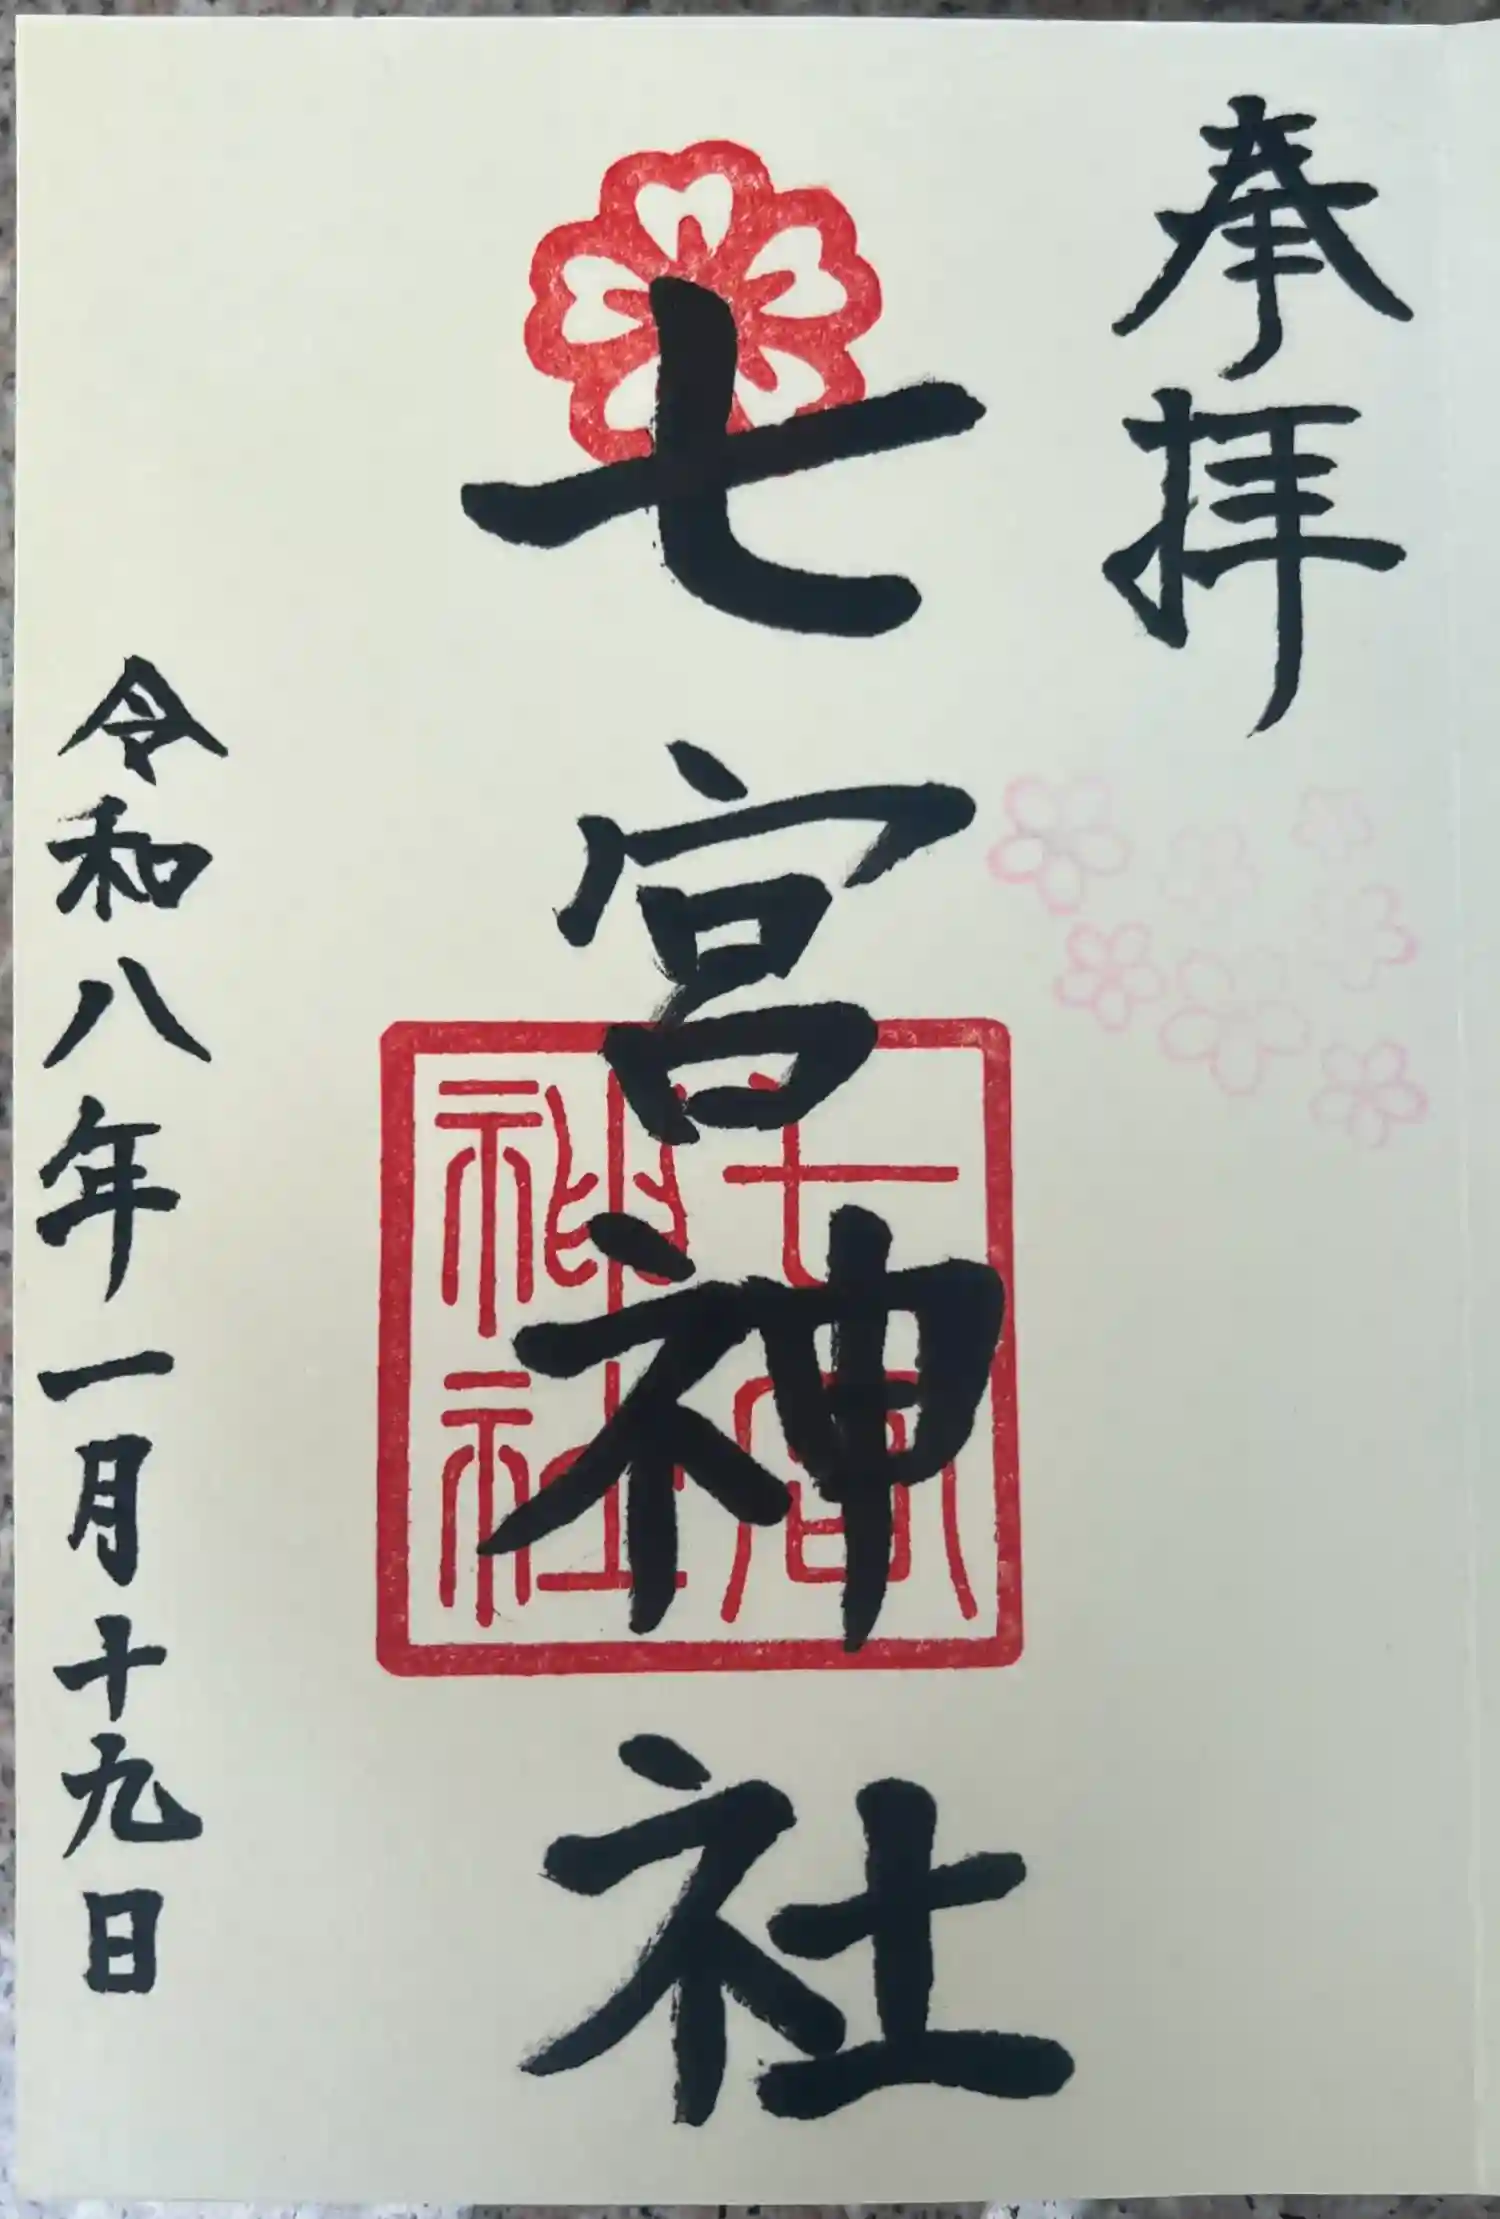 奉拝
七宮神社
七宮神社
令和八年一月十九日